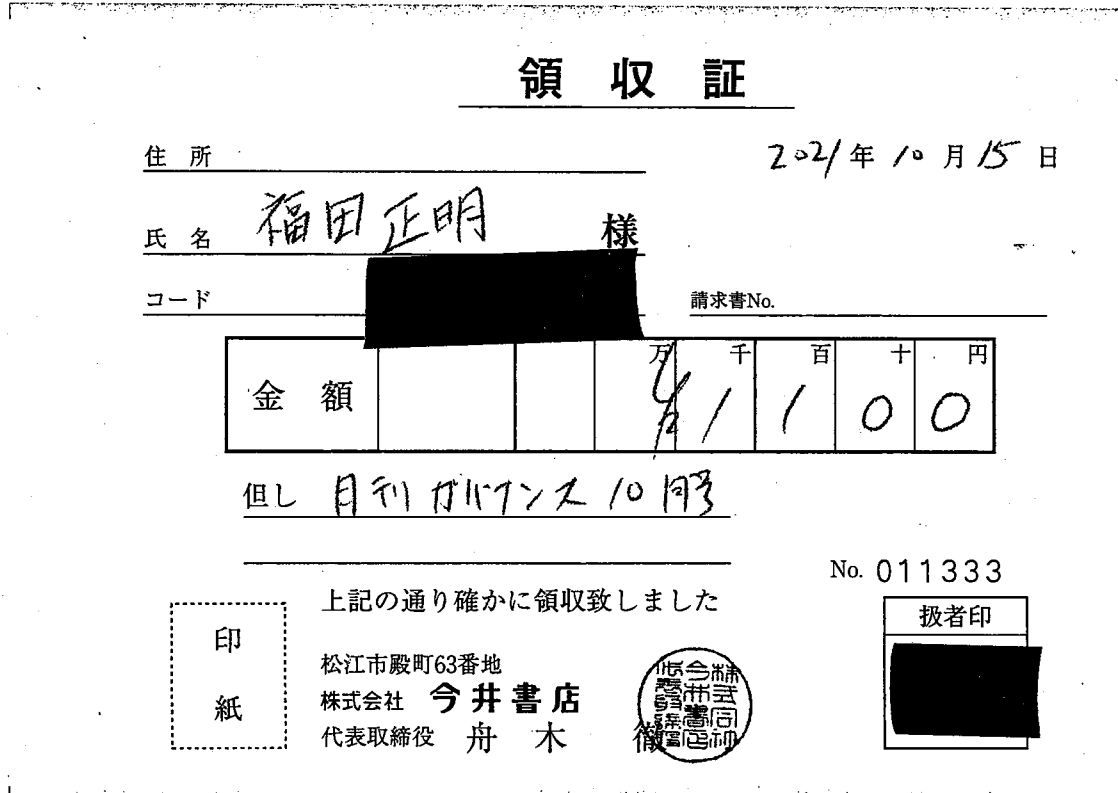 領収証
住所
2021年10月15日
氏名 福田正明 様
コード
請求書No.
金額 万 千 百 十 円
1 1 0 0
但し 月刊ガバナンス10月号
No. 011333
上記の通り確かに領収致しました
扱者印
印紙
松江市殿町63番地
株式会社 今井書店
代表取締役 舟木 徹